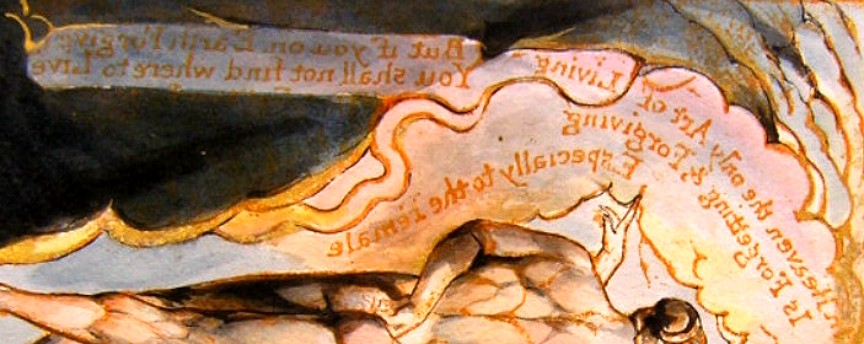 In Heaven the only Art of Living
Is Forgetting & Forgiving
Especially to the Female
But if you on Earth Forgive
You shall not find where to Live